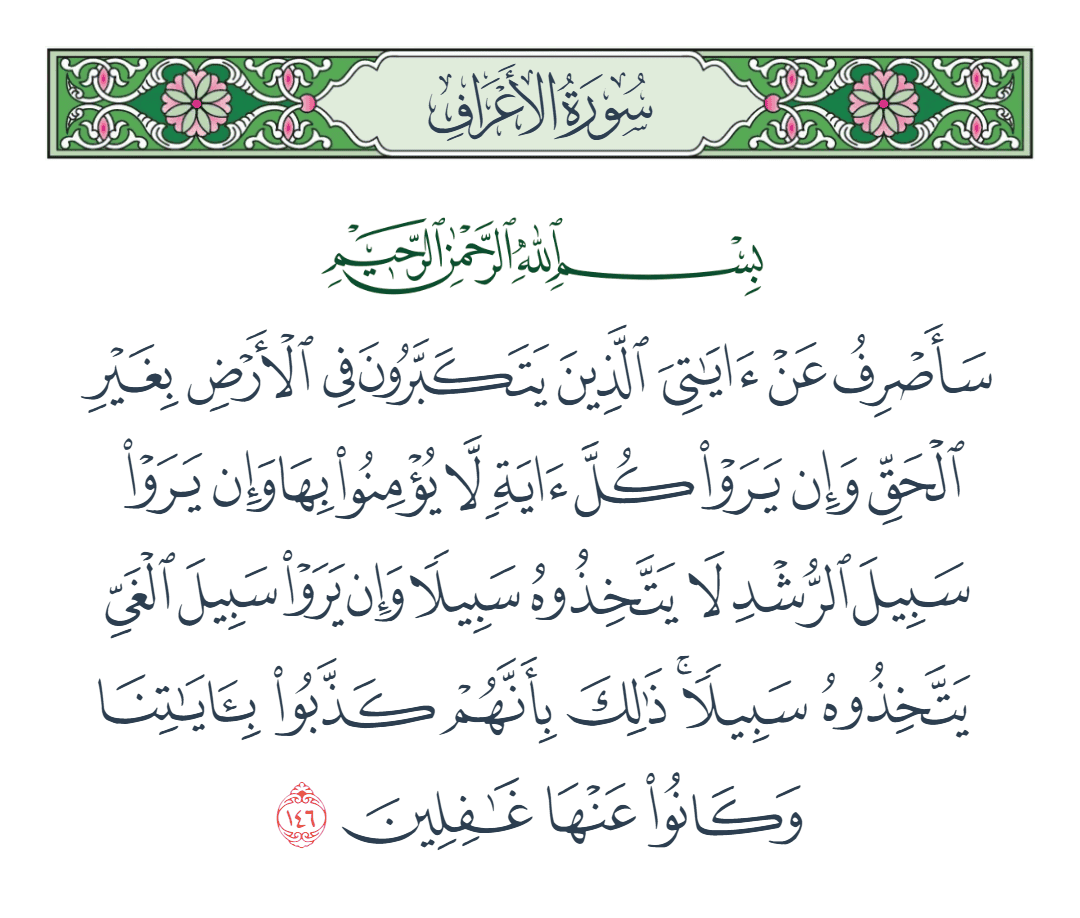 سُورَةُ الأَعْرَافِ
بِسْمِ ٱللَّهِ ٱلرَّحْمَٰنِ ٱلرَّحِيمِ
سَأَصْرِفُ عَنْ ءَايَٰتِىَ ٱلَّذِينَ يَتَكَبَّرُونَ فِى ٱلْأَرْضِ بِغَيْرِ
ٱلْحَقِّ وَإِن يَرَوْا۟ كُلَّ ءَايَةٍ لَّا يُؤْمِنُوا۟ بِهَا وَإِن يَرَوْا۟
سَبِيلَ ٱلرُّشْدِ لَا يَتَّخِذُوهُ سَبِيلًا وَإِن يَرَوْا۟ سَبِيلَ ٱلْغَىِّ
يَتَّخِذُوهُ سَبِيلًا ۚ ذَٰلِكَ بِأَنَّهُمْ كَذَّبُوا۟ بِـَٔايَٰتِنَا
وَكَانُوا۟ عَنْهَا غَٰفِلِينَ ١٤٦